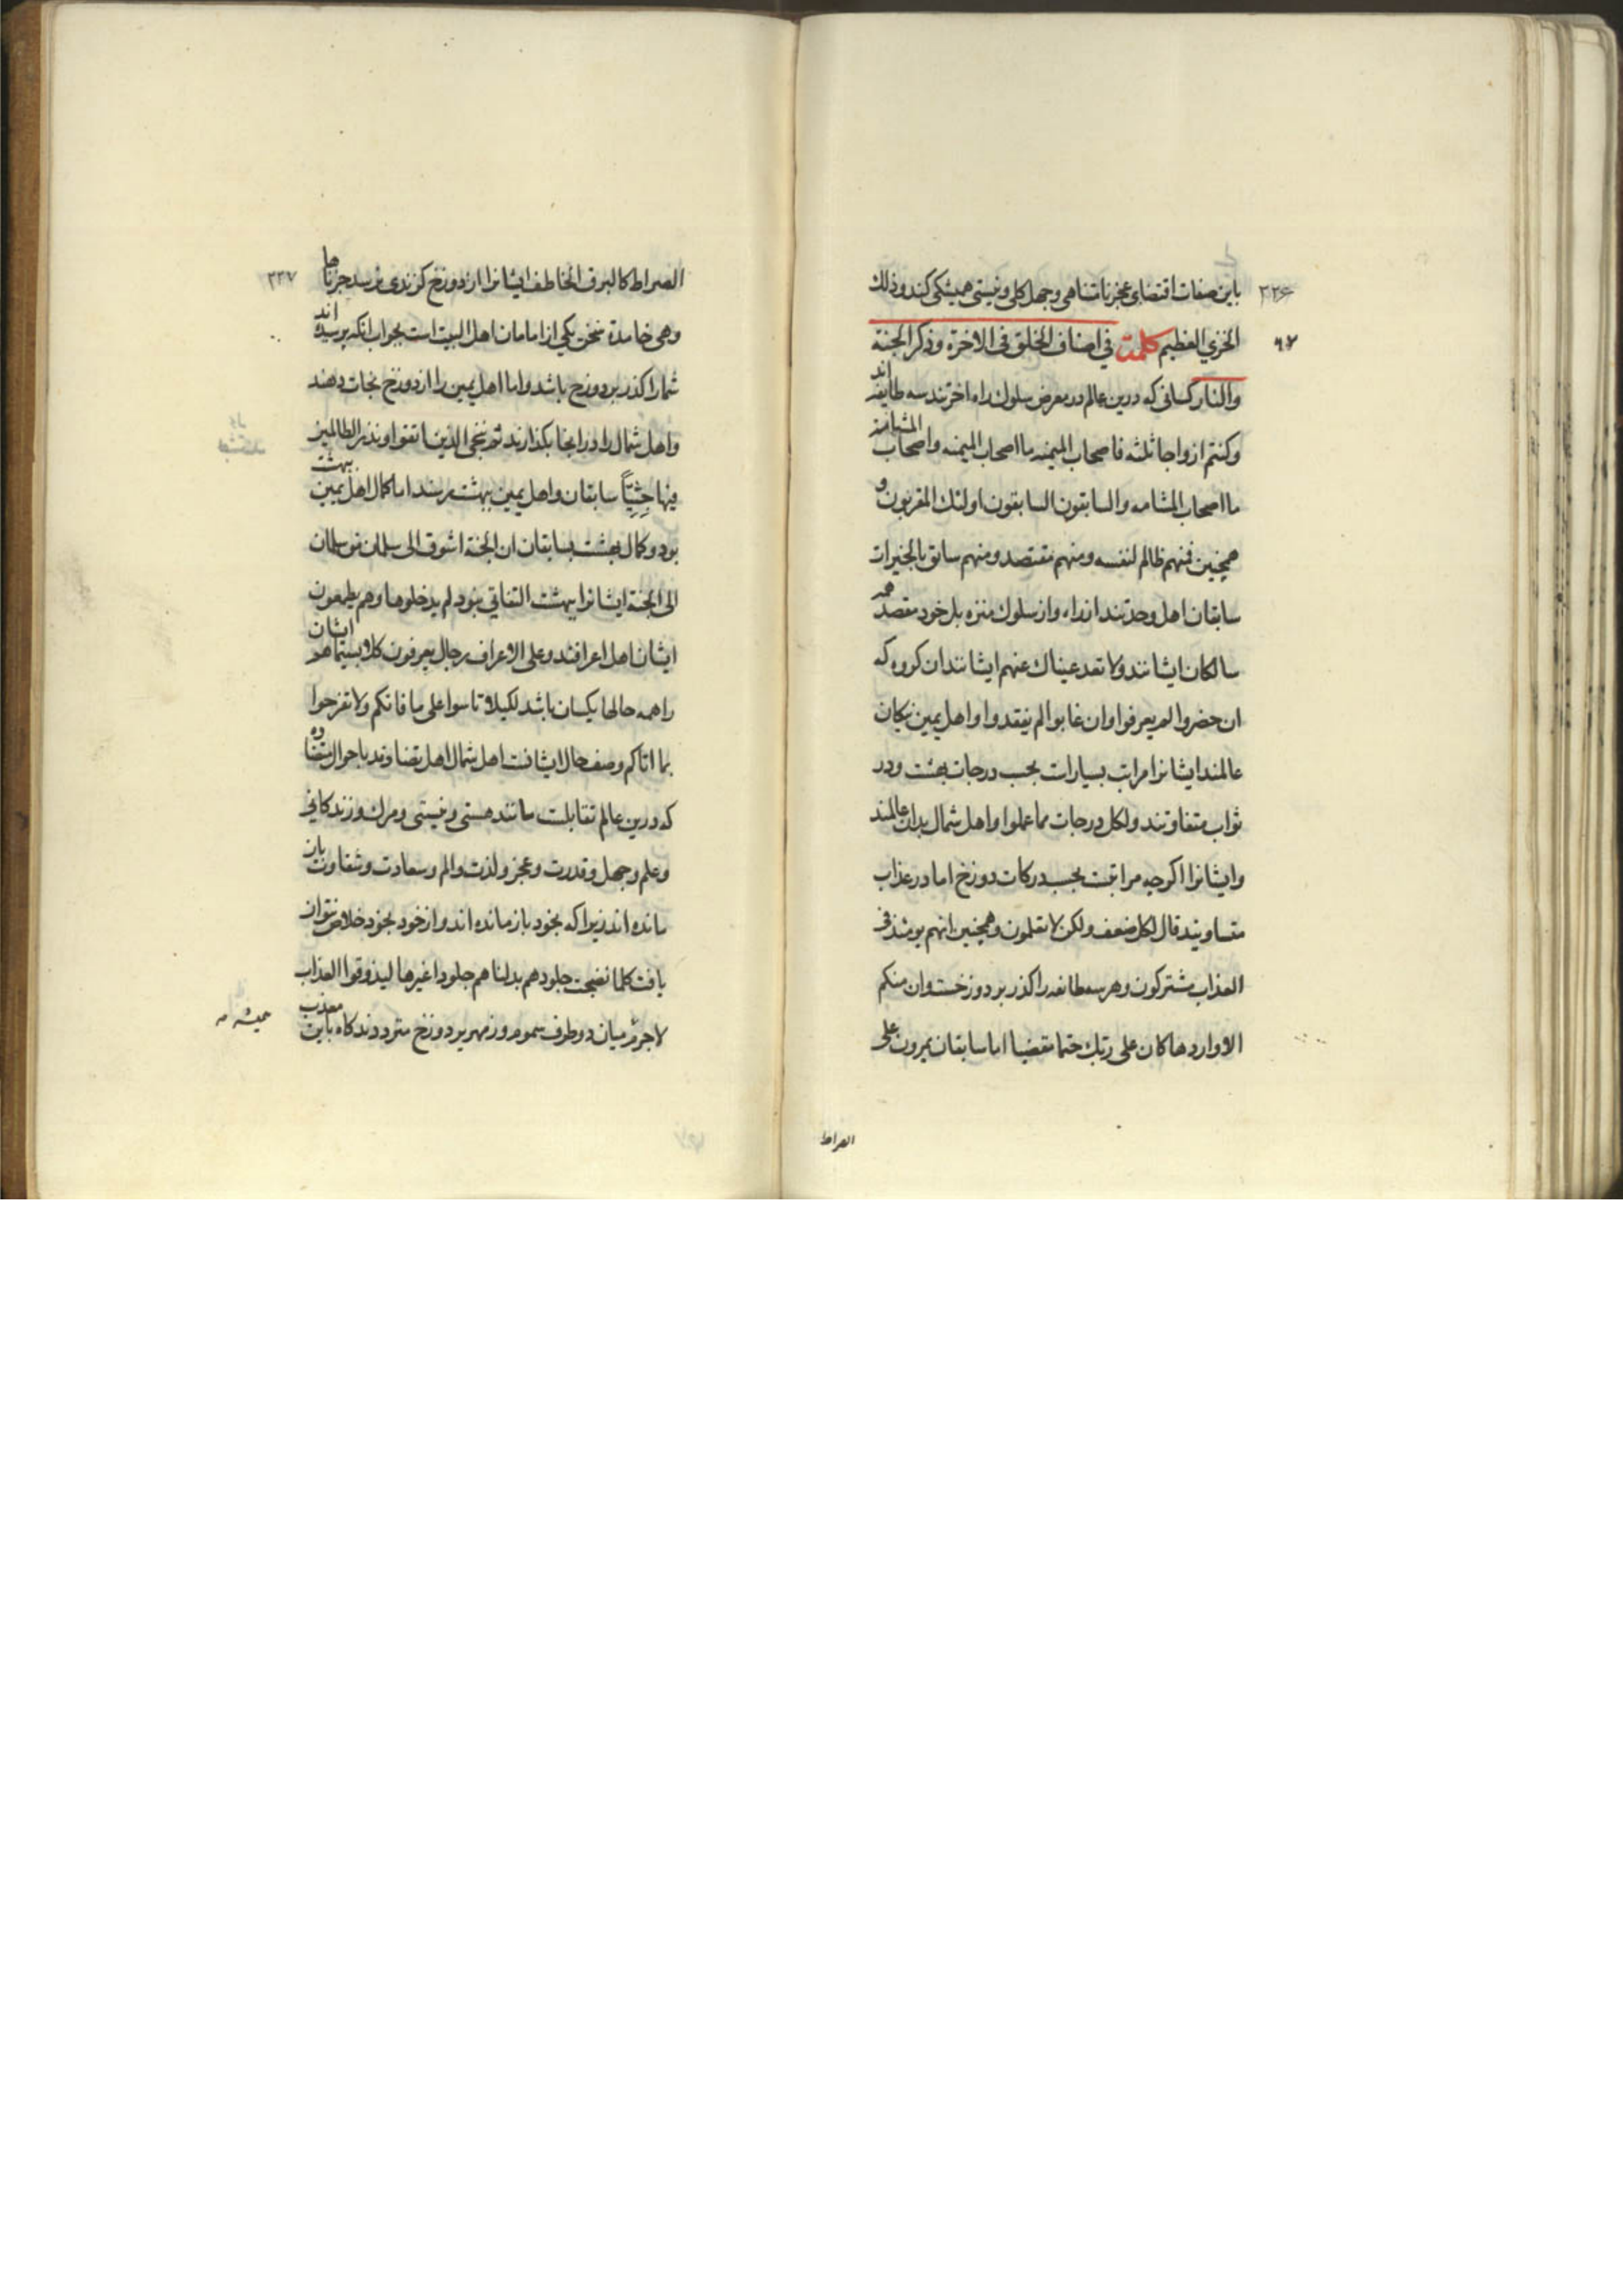 ۲۳۶
باین صفات اقتضای عجز نامتناهی و جهل کلی و نیستی همیشکی کند و ذلک
۹۷
الخزي العظیم کلمة في اصناف الخلق فی الاخرة و ذکر الجنة
والنار کسانی که درین عالم در معرض سلوک راه اخرتند سه طایفه اند
وکنتم ازواجا ثلثه فاصحاب المیمنه ما اصحاب المیمنه واصحاب المشامه
ما اصحاب المشامه والسابقون السابقون اولئک المقربون و
همچنین فمنهم ظالم لنفسه ومنهم مقتصد ومنهم سابق بالخیرات
سابقان اهل وحدتند از راه و از سلوک منزه بل خود مقصد همه
سالکان ایشانند ولا تعد عیناک عنهم ایشانند ان کروه که
ان حضروا لم یعرفوا وان غابوا لم یفقدوا و اهل یمین نیکان
عالمند ایشانرا مراتب بسیارات بحسب درجات بهشت و در
ثواب متفاوتند ولکل درجات مما عملوا و اهل شمال بدان عالمند
وایشانرا اکرچه مراتبت بحسب درکات دوزخ اما در عذاب
متساویند قال لکل ضعف ولکن لا تعلمون وهمچنین انهم یومئذ فی
العذاب مشترکون و هر سه طائفه را کذر بر دوزخست وان منکم
الا واردها کان علی ربک حتما مقضیا اما سابقان یمرون علی
الصراط
۲۳۷
الصراط کالبرق الخاطف ایشانرا از دوزخ کزندی نرسد جزناها
وهی خامدة سخن یکی از امامان اهل البیت است بجواب انکه پرسیده اند
شما را کذر بر دوزخ باشد و اما اهل یمین را از دوزخ نجات دهند
واهل شمال را در انجا بکذارند ثم ننجی الذین اتقوا ونذر الظالمین
فیها جِثِیّاً سابقان و اهل یمین ببهشت رسند اما کمال اهل یمین بهشت
بود و کمال بهشت بسابقان ان الجنة اشوق الی سلمان من سلمان
الی الجنة ایشانرا ببهشت التفاتی نبود لم یدخلوها وهم یطمعون
ایشان اهل اعرافند وعلی الاعراف رجال یعرفون کلا بسیماهم ایشان
را همه حالها یکسان باشد لکیلا تاسوا علی ما فاتکم ولا تفرحوا
بما اتاکم وصف حال ایشانت اهل شمال اهل تضاوند باحوال متضاده
که درین عالم تقابلت مانند هستی و نیستی و مرک و زندکانی
وعلم وجهل وقدرت وعجز ولذت والم وسعادت وشقاوت باز
مانده اند زیرا که بخود باز مانده اند و از خود بخود خلاص نتوان
یافت کلما نضجت جلودهم بدلناهم جلودا غیرها لیذوقوا العذاب
لاجرم میان دو طرف سموم و زمهریر دوزخ مترددند کاه باین معذب
همیشه